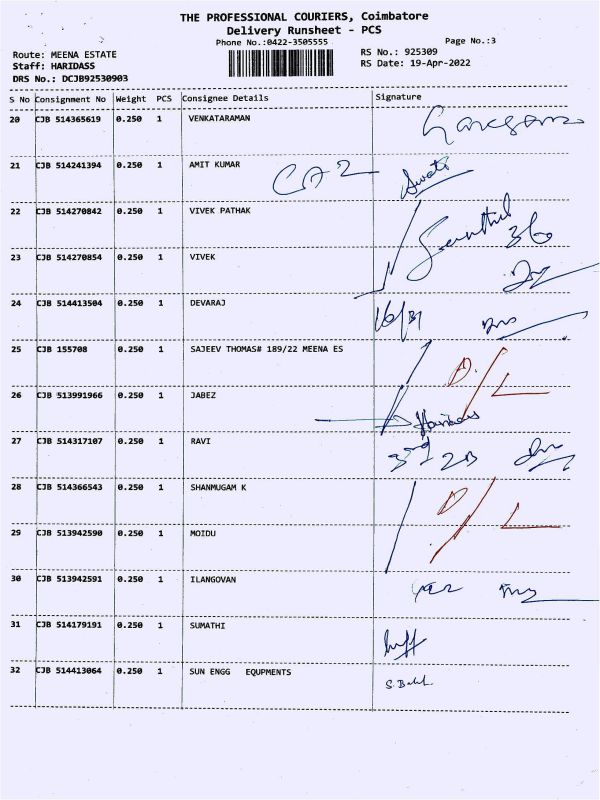 THE PROFESSIONAL COURIERS, Coimbatore
Delivery Runsheet - PCS
Phone No.:0422-3505555
Page No.:3
Route: MEENA ESTATE
RS No.: 925309
Staff: HARIDASS
RS Date: 19-Apr-2022
DRS No.: DCJB92530903
S No Consignment No Weight PCS Consignee Details Signature
20 CJB 514365619 0.250 1 VENKATARAMAN
21 CJB 514241394 0.250 1 AMIT KUMAR
22 CJB 514270842 0.250 1 VIVEK PATHAK
36
23 CJB 514270854 0.250 1 VIVEK
24 CJB 514413504 0.250 1 DEVARAJ
25 CJB 155708 0.250 1 SAJEEV THOMAS# 189/22 MEENA ES
D/L
26 CJB 513991966 0.250 1 JABEZ
Haridass
27 CJB 514317107 0.250 1 RAVI
3rd 2B
28 CJB 514366543 0.250 1 SHANMUGAM K
D/L
29 CJB 513942590 0.250 1 MOIDU
30 CJB 513942591 0.250 1 ILANGOVAN
31 CJB 514179191 0.250 1 SUMATHI
32 CJB 514413064 0.250 1 SUN ENGG EQUPMENTS